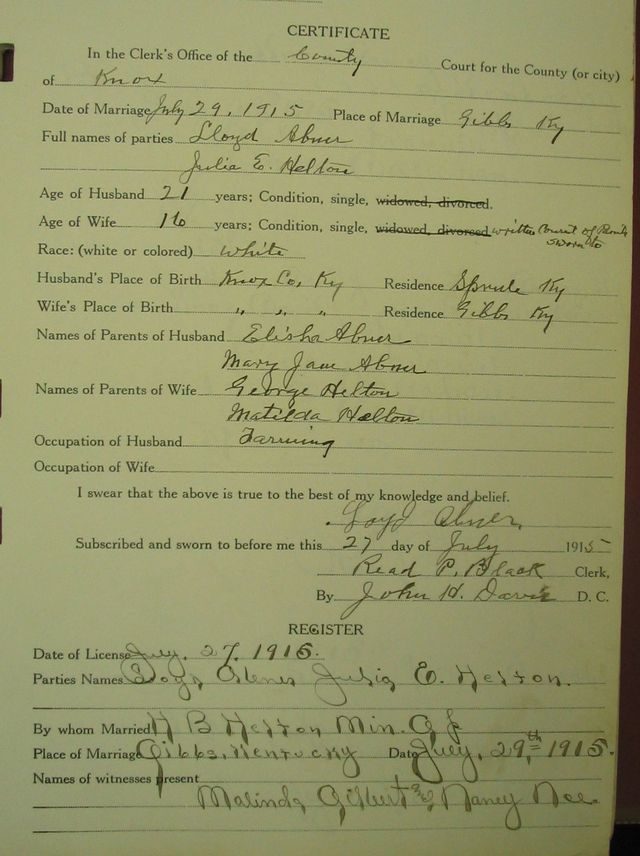 CERTIFICATE
In the Clerk's Office of the County Court for the County (or city)
of Knox
Date of Marriage July 29, 1915 Place of Marriage Gibbs Ky
Full names of parties Lloyd Abner
Julia E. Helton
Age of Husband 21 years; Condition, single, widowed, divorced.
Age of Wife 16 years; Condition, single, widowed, divorced written Consent of
sworn to
Race: (white or colored) white
Husband's Place of Birth Knox Co, Ky Residence Sprule Ky
Wife's Place of Birth " " " Residence Gibbs Ky
Names of Parents of Husband Elisha Abner
Mary Jane Abner
Names of Parents of Wife George Helton
Matilda Helton
Occupation of Husband Farming
Occupation of Wife
I swear that the above is true to the best of my knowledge and belief.
Loyd Abner
Subscribed and sworn to before me this 27 day of July 1915
Read P. Black Clerk,
By John H. Davis D. C.
REGISTER
Date of License July, 27, 1915.
Parties Names Loyd Abner Julia E. Helton.
By whom Married H B Helton Min. O
Place of Marriage Gibbs, Kentucky Date July, 29th 1915.
Names of witnesses present
Malinda Gilbert & Nancy Nee.